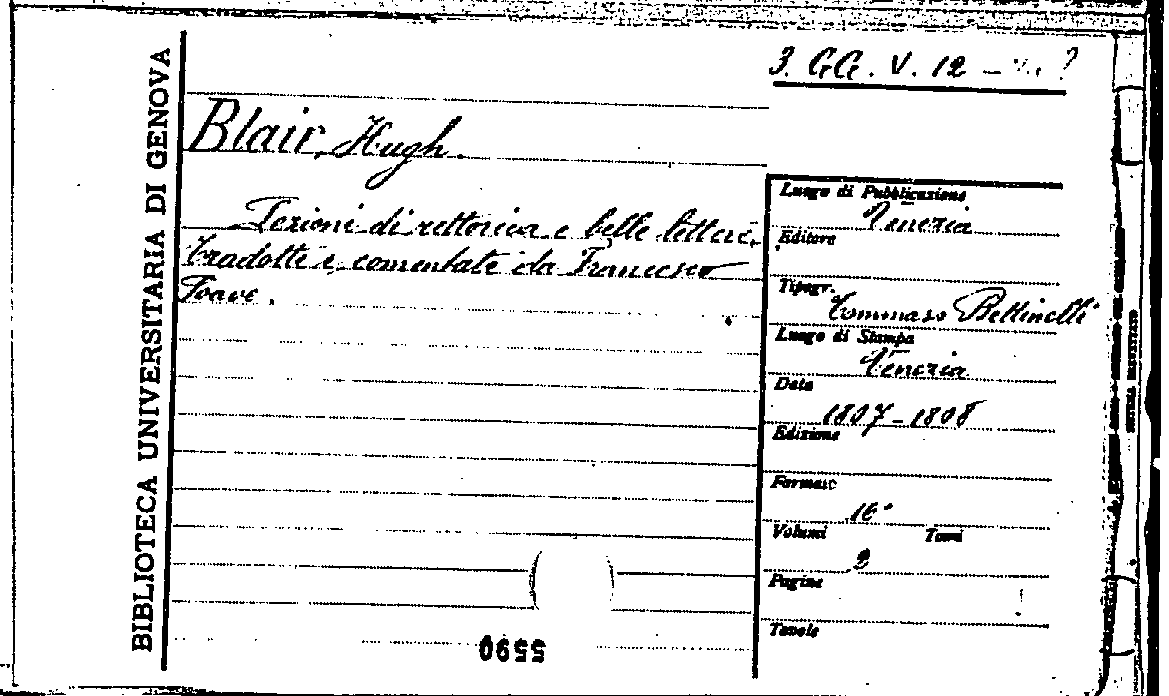 BIBLIOTECA UNIVERSITARIA DI GENOVA
3. GG. V. 12
Blair, Hugh.
Lezioni di rettorica e belle lettere,
tradotte e comentate da Francesco
Soave.
Luogo di Pubblicazione
Venezia
Editore
Tipogr.
Tommaso Bettinelli
Luogo di Stampa
Venezia
Data
1807-1808
Edizione
Formato
16°
Volumi Tomi
Pagine
Tavole
5590